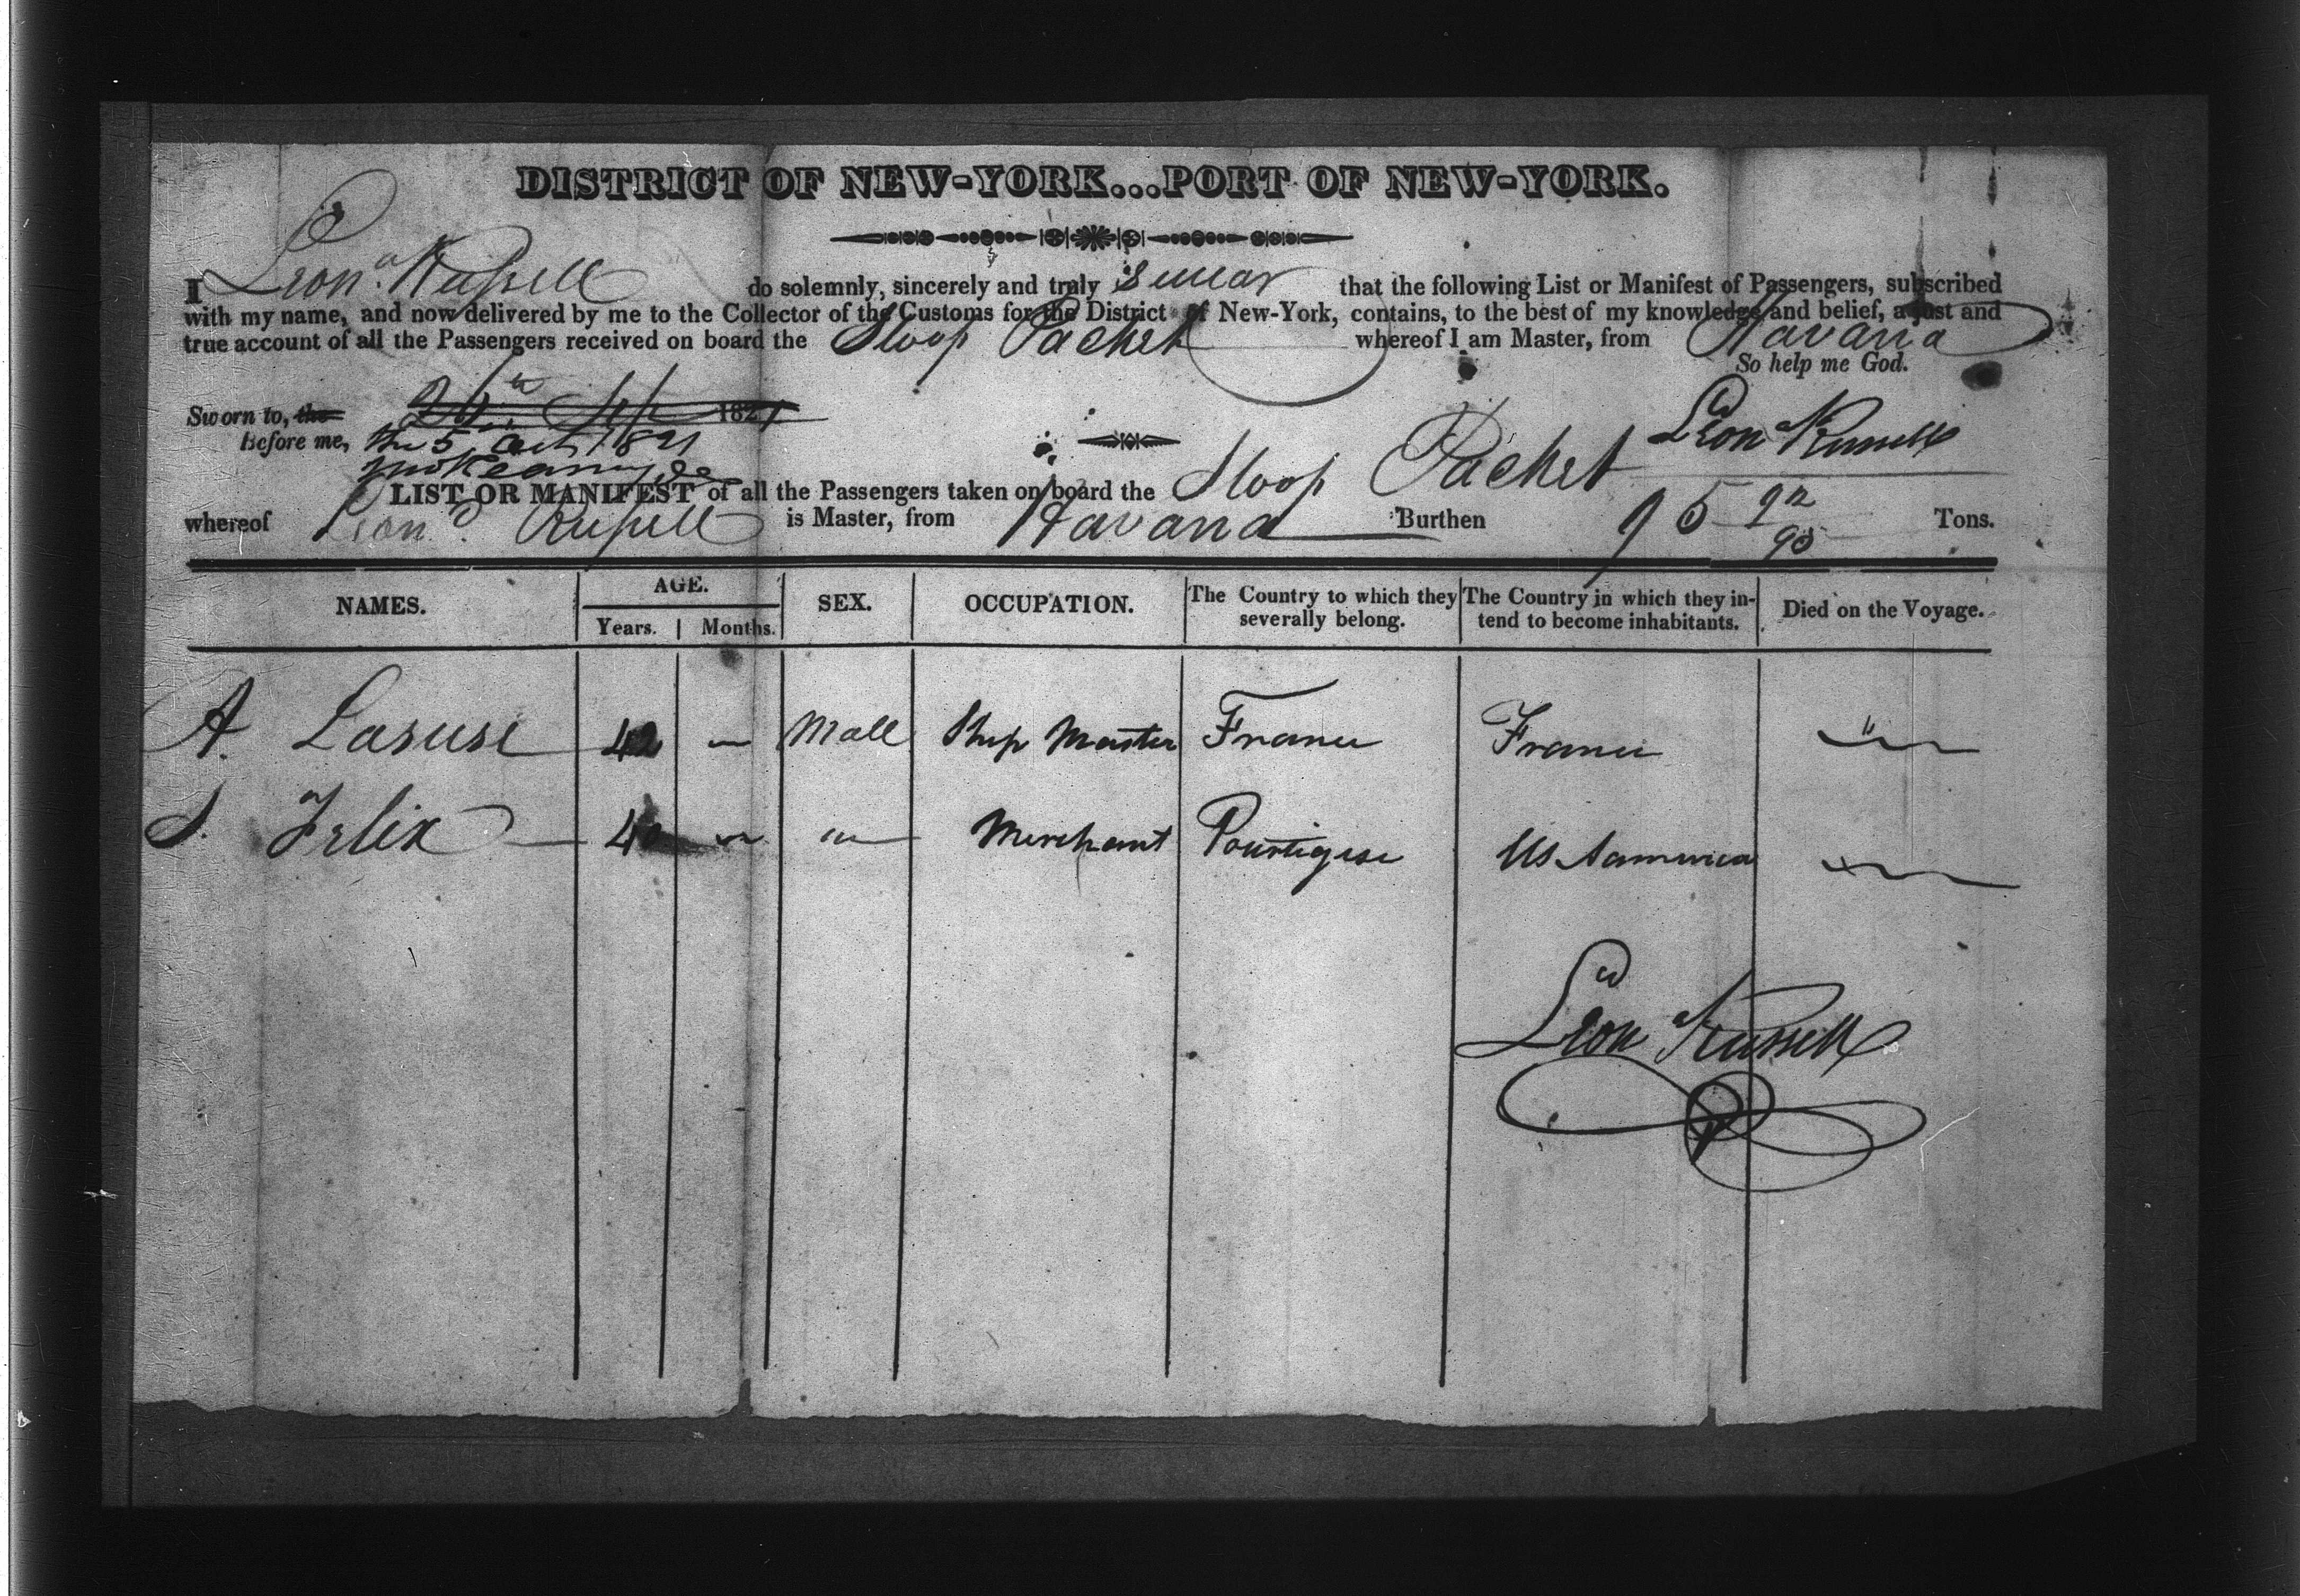 DISTRICT OF NEW-YORK...PORT OF NEW-YORK.
I Leond. Russell do solemnly, sincerely and truly swear that the following List or Manifest of Passengers, subscribed
with my name, and now delivered by me to the Collector of the Customs for the District of New-York, contains, to the best of my knowledge and belief, a just and
true account of all the Passengers received on board the Sloop Packet whereof I am Master, from Havana
So help me God.
Sworn to, the 1821
Before me, the 5 Oct 1821
Leond Russell
LIST OR MANIFEST of all the Passengers taken on board the Sloop Packet
whereof Leond. Russell is Master, from Havana Burthen 95 92/95 Tons.
NAMES. AGE. Years. Months. SEX. OCCUPATION. The Country to which they severally belong. The Country in which they intend to become inhabitants. Died on the Voyage.
A. Lasuse 42 — Male Ship Master France France
S. Felix 40 Merchant Pourtigese Us Aamerica
Leond Russell